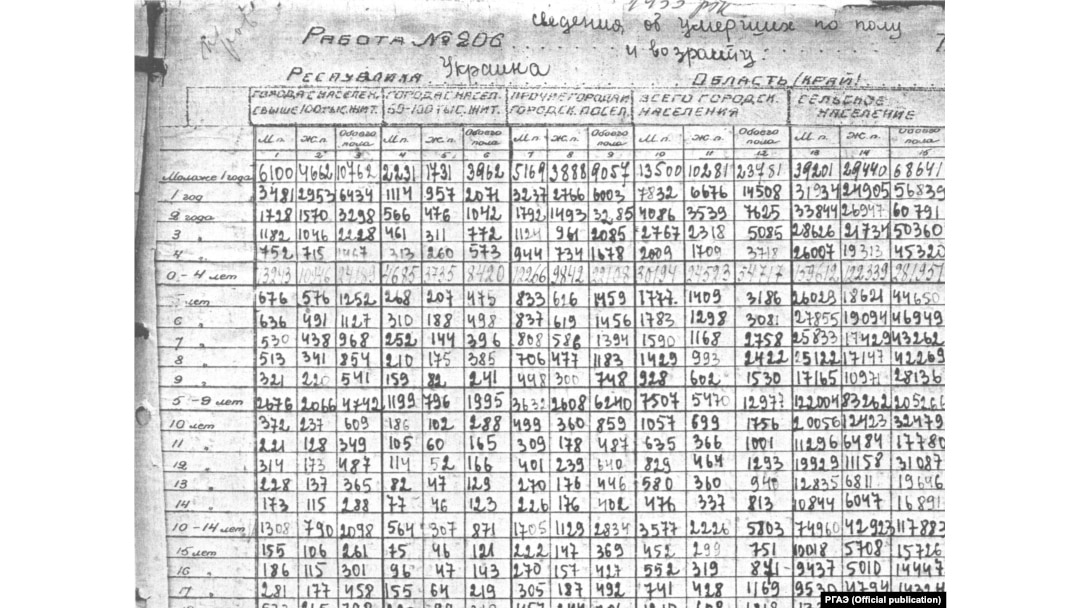 1933
РАБОТА № 206
сведения об умерших по полу
и возрасту.
РЕСПУБЛИКА Украина
ОБЛАСТЬ /КРАЙ/
ГОРОДА С НАСЕЛЕН. СВЫШЕ 100 ТЫС. ЖИТ. ГОРОДА С НАСЕЛ. 50-100 ТЫС. ЖИТ. ПРОЧИЕ ГОРОДА И ГОРОДСК. ПОСЕЛ. ВСЕГО ГОРОДСК. НАСЕЛЕНИЯ СЕЛЬСКОЕ НАСЕЛЕНИЕ
М п. Ж п. Обоего пола М п. Ж п. Обоего пола М п. Ж п. Обоего пола М п. Ж п. Обоего пола М п. Ж п. Обоего пола
1 2 3 4 5 6 7 8 9 10 11 12 13 14 15
Моложе 1 года 6100 4662 10762 2231 1731 3962 5169 3888 9057 13500 10281 23781 39201 29440 68641
1 год 3481 2953 6434 1114 957 2071 3237 2766 6003 7832 6676 14508 31934 24905 56839
2 года 1728 1570 3298 566 476 1042 1792 1493 3285 4086 3539 7625 33844 26947 60791
3 " 1182 1046 2228 461 311 772 1124 961 2085 2767 2318 5085 28626 21734 50360
4 " 752 715 1467 313 260 573 944 734 1678 2009 1709 3718 26007 19313 45320
0-4 лет 4685 3735 8420 9842 30194 54717
лет 676 576 1252 268 207 475 833 626 1459 1777 1409 3186 26029 18621 44650
6 " 636 491 1127 310 188 498 837 619 1456 1783 1298 3081 27855 19094 46949
7 " 530 438 968 252 144 396 808 586 1394 1590 1168 2758 25833 17429 43262
8 " 513 341 854 210 175 385 706 477 1183 1429 993 2422 25122 17147 42269
9 " 321 220 541 159 82 241 448 300 748 928 602 1530 17165 10971 28136
5-9 лет 2676 2066 4742 1199 796 1995 3632 2608 6240 7507 5470 12977 122004 83262 205266
10 лет 372 237 609 186 102 288 499 360 859 1057 699 1756 20056 12423 32479
11 " 221 128 349 105 60 165 309 178 487 635 366 1001 11296 6484 17780
12 " 314 173 487 114 52 166 401 239 640 829 464 1293 19929 11158 31087
13 " 228 137 365 82 47 129 270 176 446 580 360 940 12835 6811 19646
14 " 173 115 288 77 46 123 226 176 402 476 337 813 10844 6047 16891
10-14 лет 1308 790 2098 564 307 871 1705 1129 2834 3577 2226 5803 74960 42923 117883
15 лет 155 106 261 75 46 121 222 147 369 452 299 751 10018 5708 15726
16 " 186 115 301 96 47 143 270 157 427 552 319 871 9437 5010 14447
17 " 281 177 458 155 64 219 305 187 492 741 428 1169 9530 4794 14324
РГАЭ (Official publication)